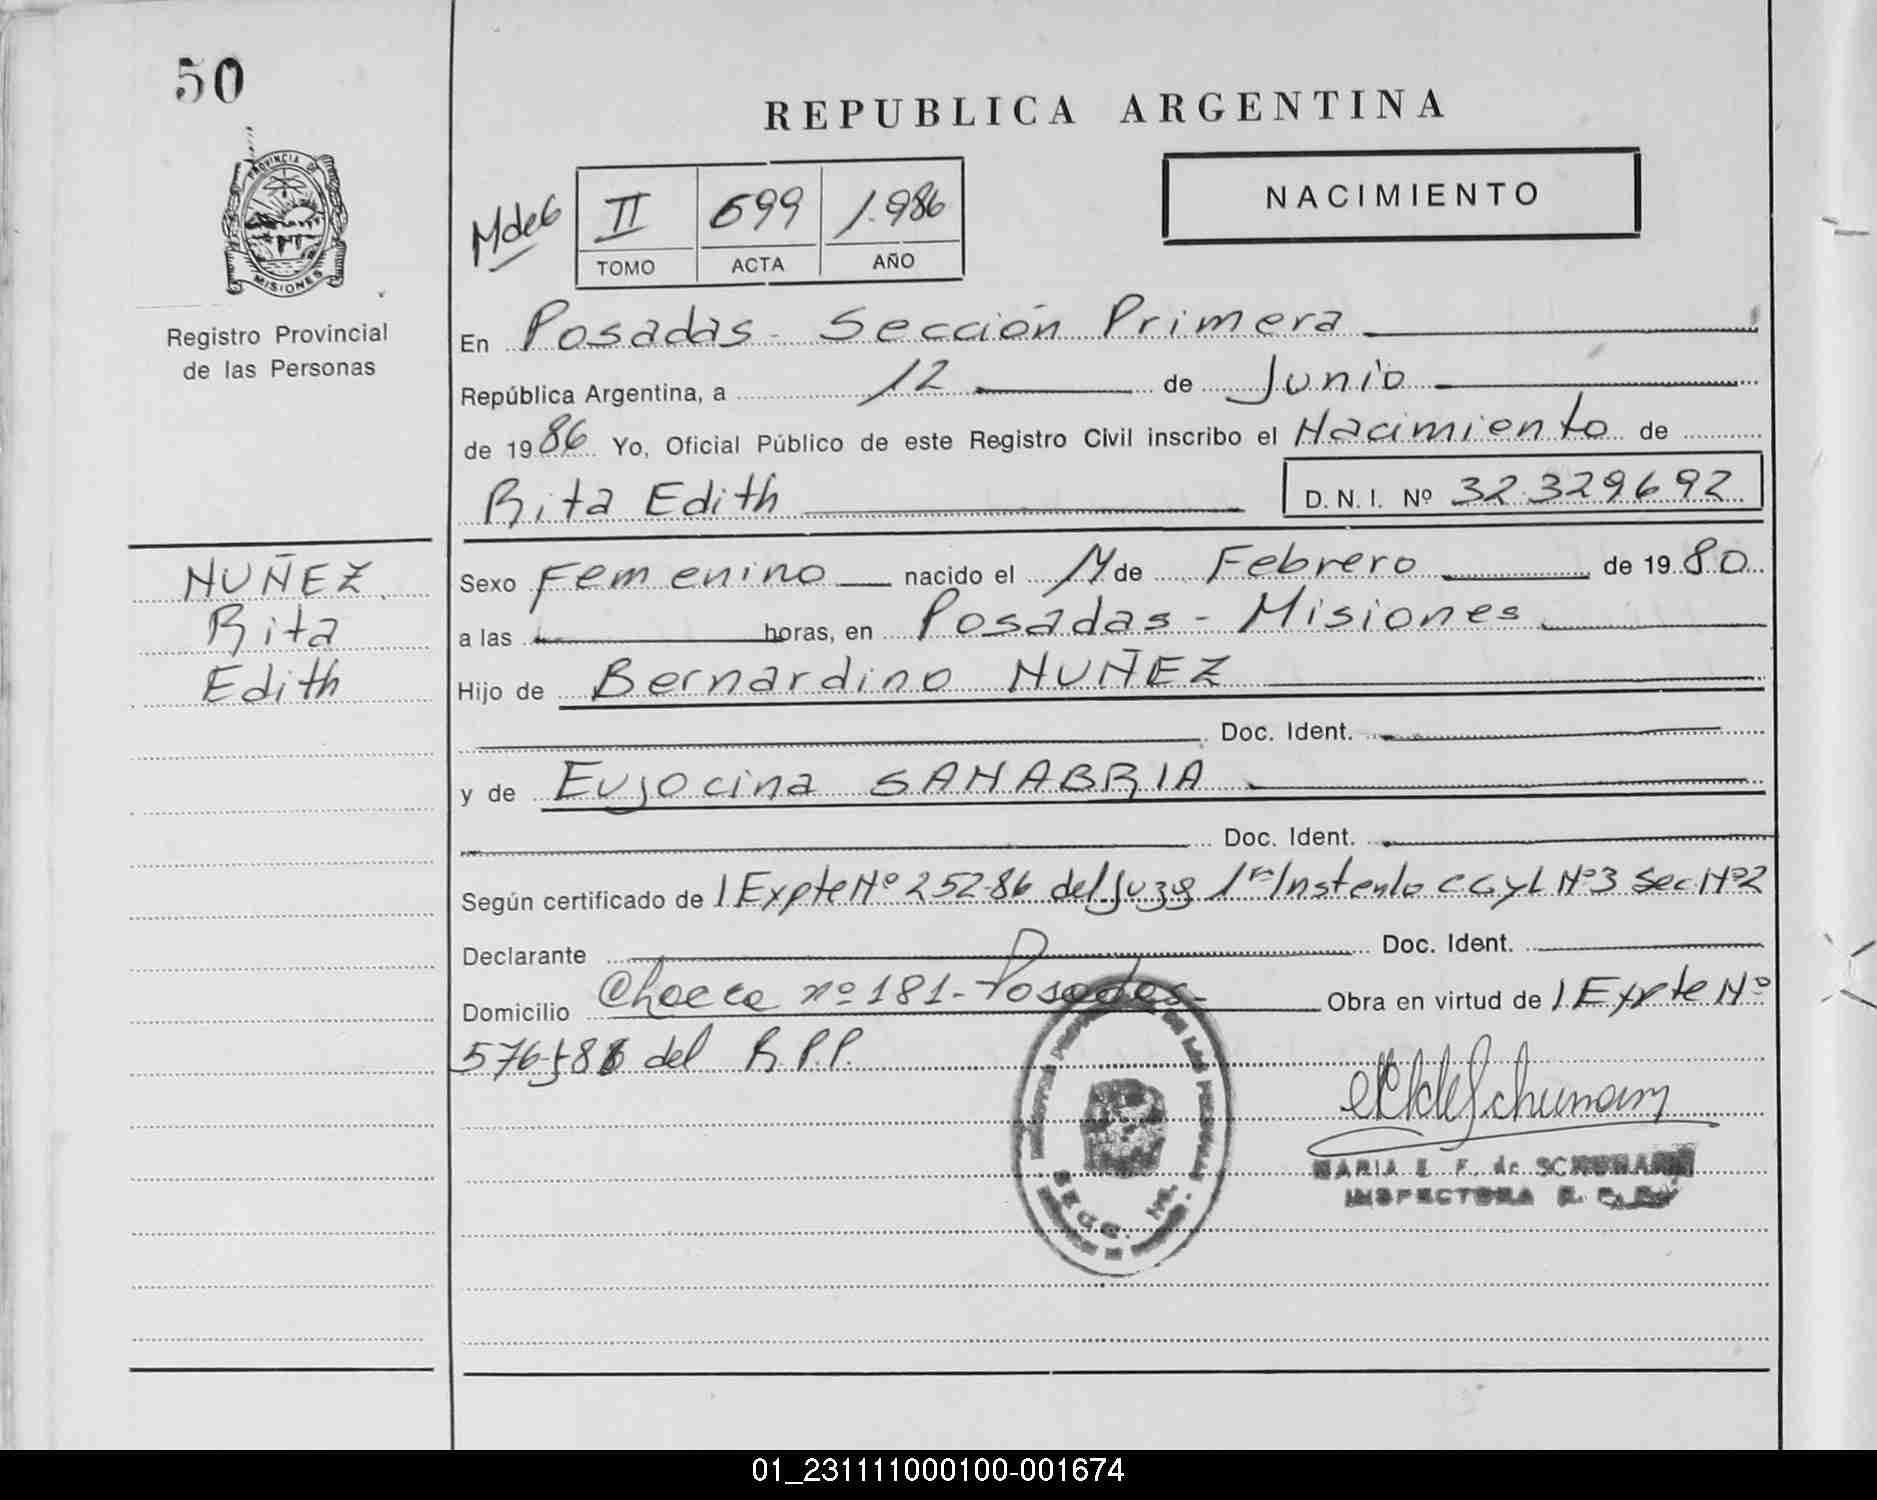 50
REPUBLICA ARGENTINA
PROVINCIA DE
MISIONES
Registro Provincial
de las Personas
II 699 1.986
TOMO ACTA AÑO
NACIMIENTO
En Posadas - Sección Primera
República Argentina, a 12 de Junio
de 1986 Yo, Oficial Público de este Registro Civil inscribo el Nacimiento de
Rita Edith D.N.I. Nº 32.329692
NUÑEZ
Rita
Edith
Sexo Femenino nacido el de Febrero de 1980
a las horas, en Posadas - Misiones
Hijo de Bernardino NUÑEZ
Doc. Ident.
y de Eujocina SANABRIA
Doc. Ident.
Según certificado de 1 Expte Nº 252-86 del Juzg 1ra Nº3 Sec Nº2
Declarante Doc. Ident.
Domicilio nº 181 - Posadas - Obra en virtud de 1 Expte Nº
del R.P.P.
MARIA E. F. de SCHUMANN
INSPECTORA R. P. P.
01_231111000100-001674